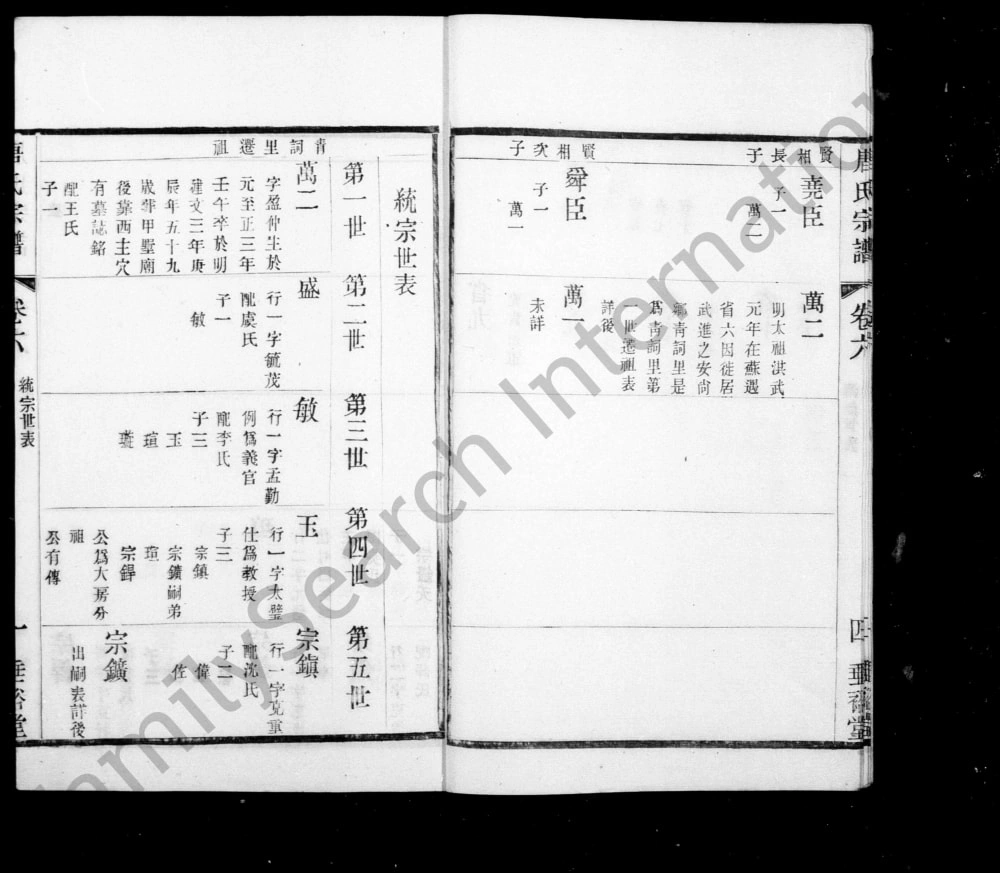 唐氏宗譜
卷六
四
垂裕堂
賢相長子
堯臣
子一
萬二
萬二
明太祖洪武
元年在蘇遇
省六因徙居
武進之安尚
鄉青詞里是
爲青詞里第
一世遷祖表
詳後
賢相次子
舜臣
子一
萬一
萬一
未詳
統宗世表
第一世
第二世
第三世
第四世
第五世
青詞里遷祖
萬二
字盈仲生於
元至正三年
壬午卒於明
建文二年庚
辰年五十九
歲葬甲墅廟
後靠西主穴
有墓誌銘
配王氏
子一
盛
行一字毓茂
配虞氏
子一
敏
敏
行一字孟勤
例爲義官
配李氏
子三
玉
瑄
璇
玉
行一字太璧
仕爲教授
子三
宗鎮
宗鑛嗣弟
瑄
宗鋽
公爲大房分
祖
公有傳
宗鎮
行一字克重
配沈氏
子二
偉
佐
宗鑛
出嗣表詳後
唐氏宗譜
卷六
統宗世表
一
垂裕堂
FamilySearch International